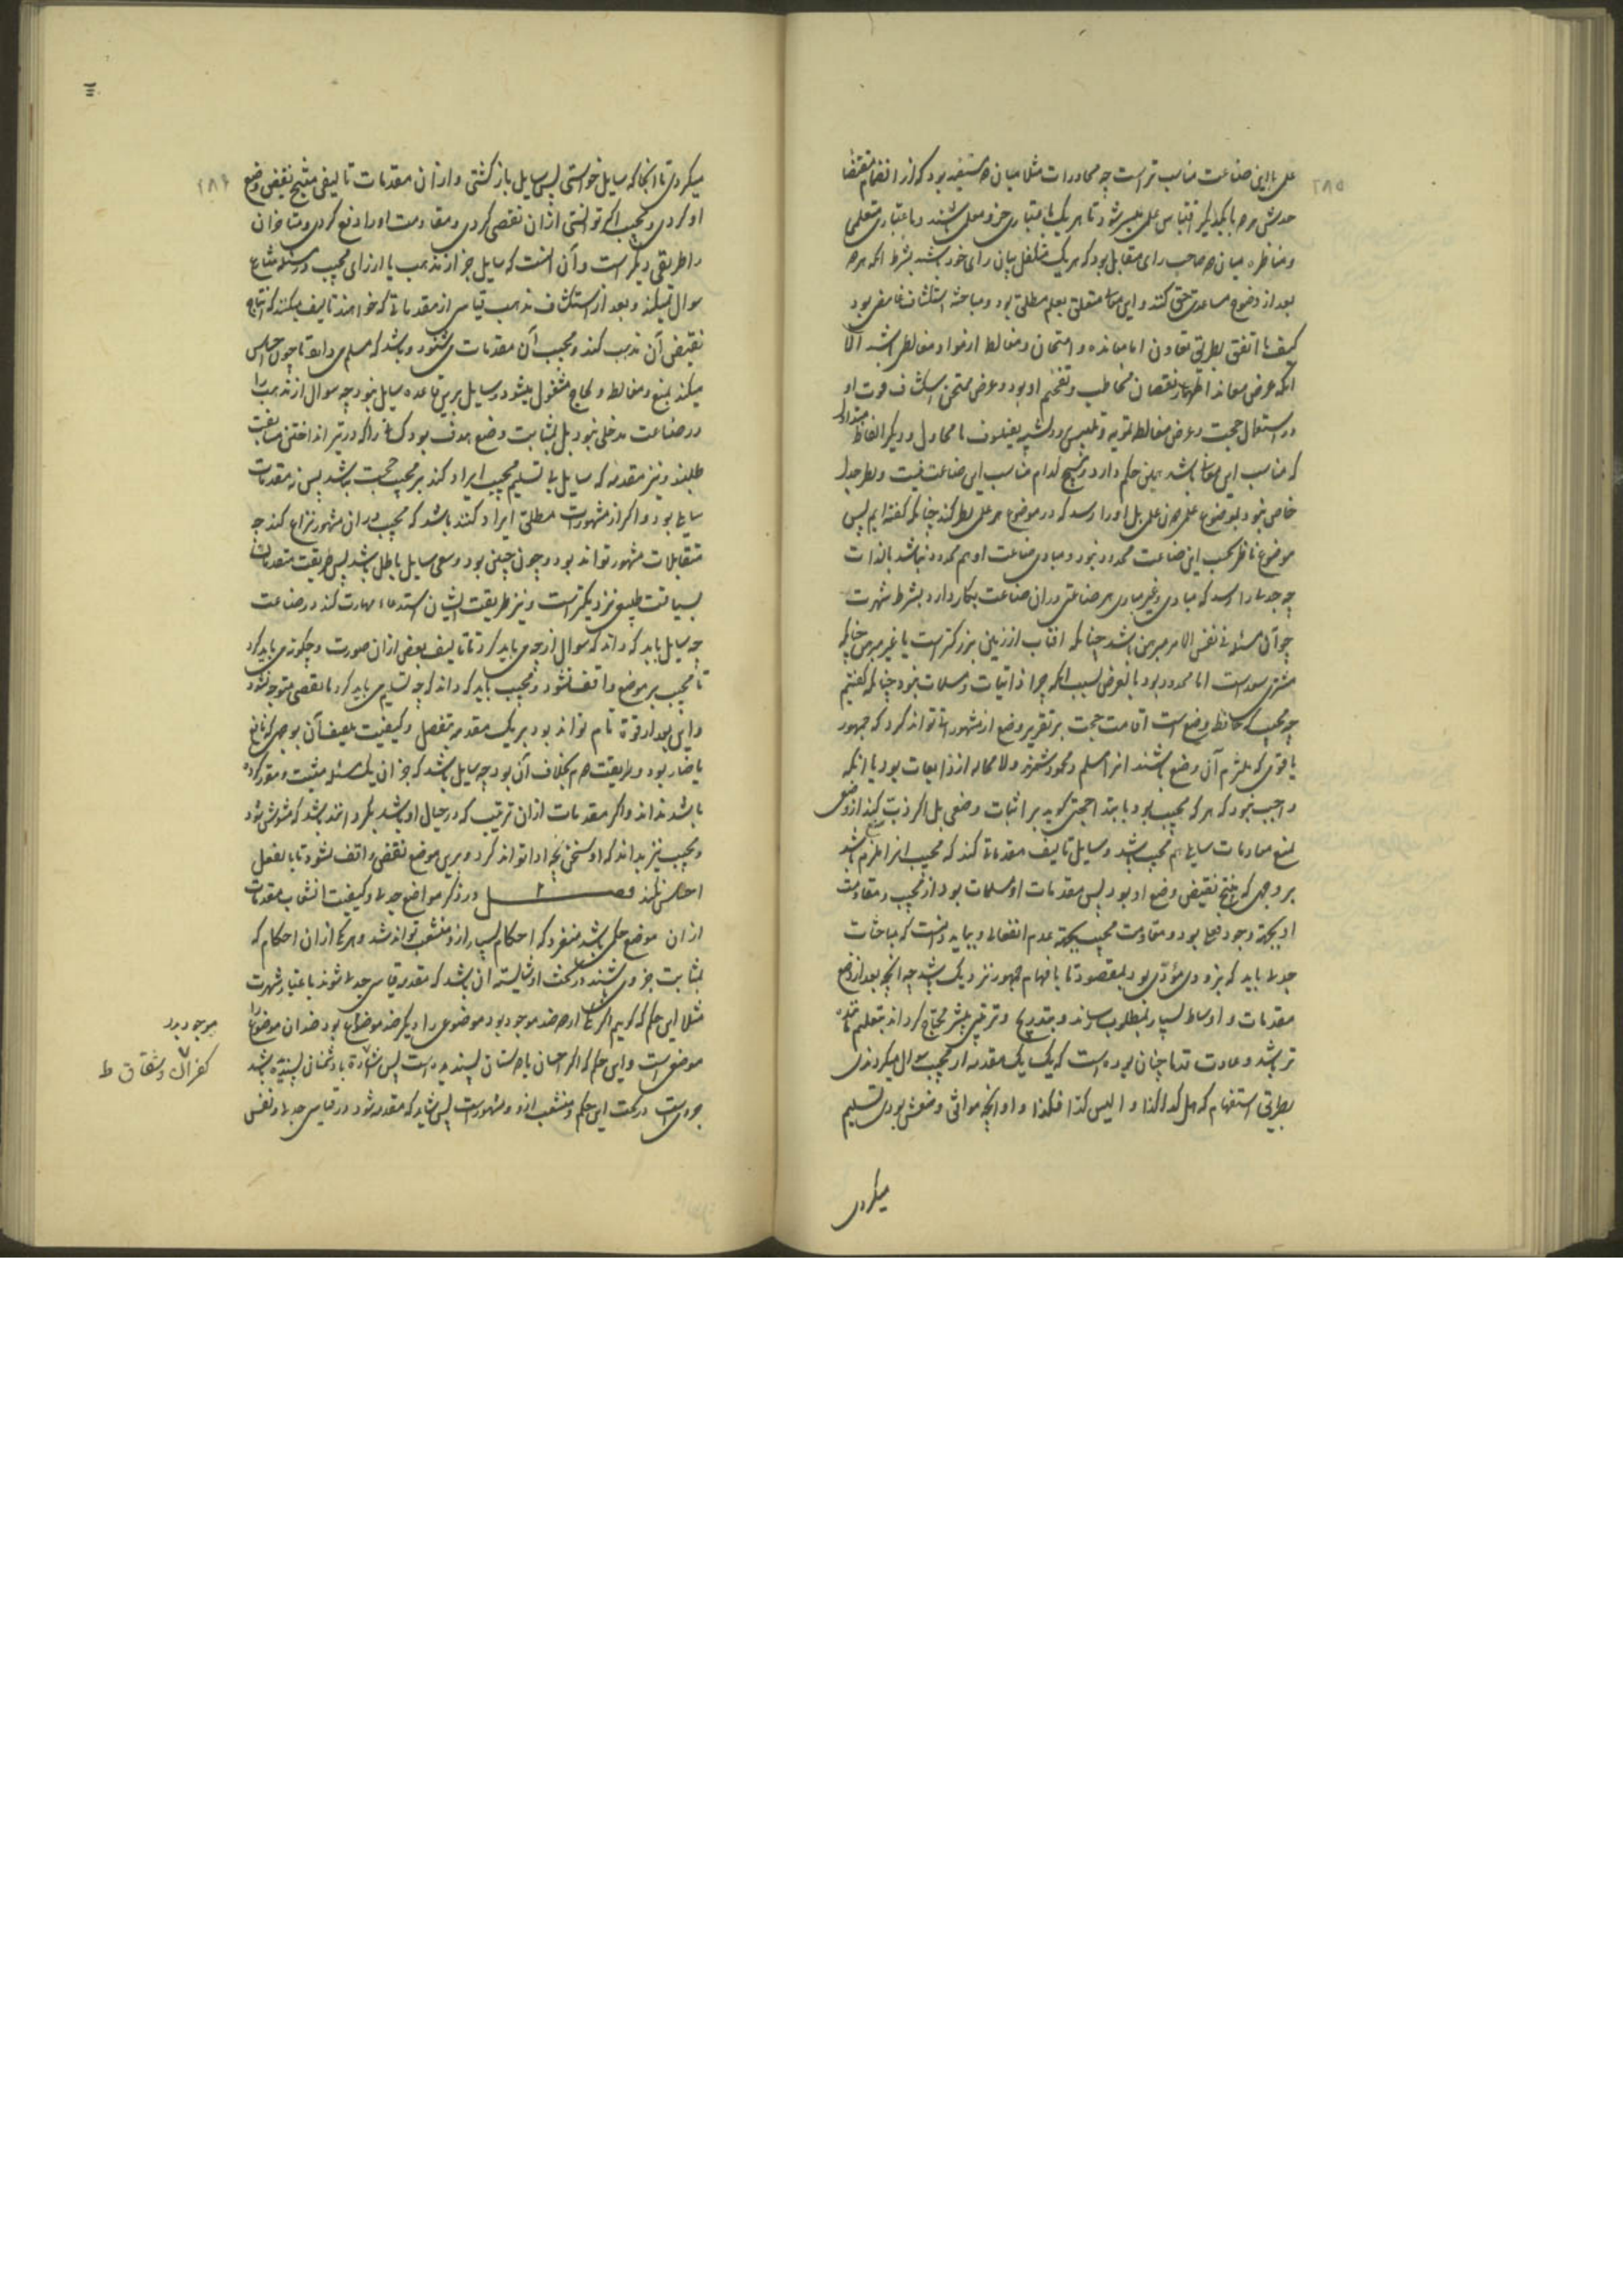 ۲۸۵
علی با این صناعت مناسب تر است چه محاورات مثلا میان دو مستفید بود که از انضمام مقتضا
حدس هر دو با یکدیگر اقتباس علمی میسر شود تا هر یک باعتباری جزو معلمی باشند و باعتباری متعلمی
و مناظره میان دو صاحب رای متقابل بود که هر یک متکفل بیان رای خود باشند بشرط انکه هر دو
بعد از وضوح مساعدت حق کنند و این معانی متعلق بعلم مطلق بود و مباحثه استکشاف غامضی بود
کیف ما اتفق بطریق تعاون اما معانده و امتحان و مغالطه از مواد مغالطی باشد الا
انکه غرض معاند اظهار نقصان مخاطب و تفخیم او بود و غرض ممتحن استکشاف قوت او
در استعمال حجت و غرض مغالط تمویه و تلبیس و تشبه بفیلسوف یا مجادل و دیگر الفاظ متداوله
که مناسب این معانی باشد همین حکم دارد و هیچ کدام مناسب این صناعت نیست و نظر جدل
خاص نبود بموضوع علمی دون علمی بل او را رسد که در موضوع هر علمی نظر کند چنانکه گفته ایم پس
موضوع ناظر بحسب این صناعت محدود نبود و مبادی صناعت او هم محدود نباشد بالذات
چه جدلی را رسد که مبادی و غیر مبادی هر صناعتی در ان صناعت بکار دارد بشرط شهرت
چه آن مسئله فی نفس الامر مبرهن باشد چنانکه افتاب از زمین بزرکتر است یا غیر مبرهن چنانکه
مشتری سعد است اما محدود بود بالعرض بسبب انکه جز از ذایعات و مسلمات نبود چنانکه گفتیم
چه مجیب که حافظ وضع است اقامت حجت بر تقریر وضع از مشهوراتی تواند کرد که جمهور
یا قومی که ملتزم آن وضع باشند انرا مسلم و محمود شمرند و لا محاله از ذایعات بود با انکه
واجب نبود که هر که مجیب بود بابتدا حجتی گوید بر اثبات وضعی بل اگر ذب کند از وضعی
بمنع مقدمات سایل هم مجیب باشد و سایل تالیف مقدماتی کند که مجیب انرا ملتزم باشد
بر وجهی که منتج نقیض وضع او بود پس مقدمات او مسلمات بود از مجیب و مقاومت
او بجهة وجود فعل بود و مقاومت مجیب بجهة عدم انفعال و بباید دانست که مباحثات
جدلی باید که بزودی مؤدی بود بمقصود تا بافهام جمهور نزدیک باشد چه انچه بعد از وضع
مقدمات و اوساط بسیار بمطلوب رساند و بتدریج و ترقی بیشتر محتاج گرداند بتعلیم ماننده
تر باشد و عادت قدما چنان بوده است که یک یک مقدمه از مجیب سوال میکردندی
بطریق استفهام که هل کذا کذا و ا لیس کذا فکذا و او انچه موافق وضعش بودی تسلیم
میکردی
۲۸۶
میکردی تا انجا که سایل خواستی پس سایل باز گشتی و از ان مقدمات تالیفی منتج نقیض وضع
او کردی و مجیب اگر توانستی از ان تفصی کردی و مقاومت او را دفع کردی و متاخران
را طریقی دیگر است و آن انست که سایل جز از مذهب یا از رای مجیب در مسئله متنازع
سوال نمیکند و بعد از استکشاف مذهب قیاس از مقدماتی که خواهند تالیف میکنند که انتاج
نقیض آن مذهب کند و مجیب آن مقدمات می شنود و باشد که مسلم می دارد تا چون احساس
میکند بمنع و مغالطه و لجاج مشغول میشود و سایل برین قاعده سایل نبود چه سوال از مذهب را
در صناعت مدخلی نبود بل بمثابت وضع هدف بود کسانی را که در تیر انداختن مسابقت
طلبند و نیز مقدمه که سایل بی تسلیم مجیب ایراد کند بر مجیب حجت نباشد پس نه مقدمات
سایلی بود و اگر از مشهورات مطلق ایراد کنند باشد که مجیب در ان مشهور نزاع کند چه
متقابلات مشهور تواند بود و چون چنین بود سعی سایل باطل باشد پس طریقت متقدمان
بسیاقت طبیعی نزدیکتر است و نیز طریقت ایشان استدعاء مهارت کند در صناعت
چه سایل باید که داند که سوال از چه می باید کرد تا تالیف بعضی از ان صورت و چگونه می باید کرد
تا مجیب بر موضع واقف نشود و مجیب باید که داند که چه تسلیم می باید کرد تا نقضی متوجه نشود
و این بعد از قوة تام تواند بود بر یک مقدمه بتفصیل و کیفیت تالیف آن بوجهی که نافع
یا ضار بود و طریقت دوم بخلاف آن بود چه سایل باشد که جز ان یک مسئله مثبت و مقرر کرده
باشد نداند و اگر مقدمات از ان ترتیب که در خیال او باشد بگرداند باشد که مشوش شود
و مجیب نیز بداند که او سخن بچه ادا تواند کرد و برین موضع نقض واقف نشود تا بالفعل
احساس نکند فصل ۲ در ذکر مواضع جدلی و کیفیت انشعاب مقدمات
از ان موضع حکمی باشد منفرد که احکام بسیار از و منشعب تواند شد و هر یک از ان احکام که
بمثابت جزوی باشند در تحت او شایسته ان باشد که مقدمه قیاس جدلی شوند باعتبار شهرت
مثلا این حکم که گوییم اگر یکی از دو ضد موجود بود موضوعی را دیگر ضد موضوع بود ضد ان موضوع را
موضعی است و این حکم که اگر احسان با دوستان پسندیده است پس اساءة با دشمنان پسندیده باشد
جزوی است در تحت این حکم و منشعب از و و مشهور است پس شاید که مقدمه شود در قیاس جدلی و نفس
موجود بود